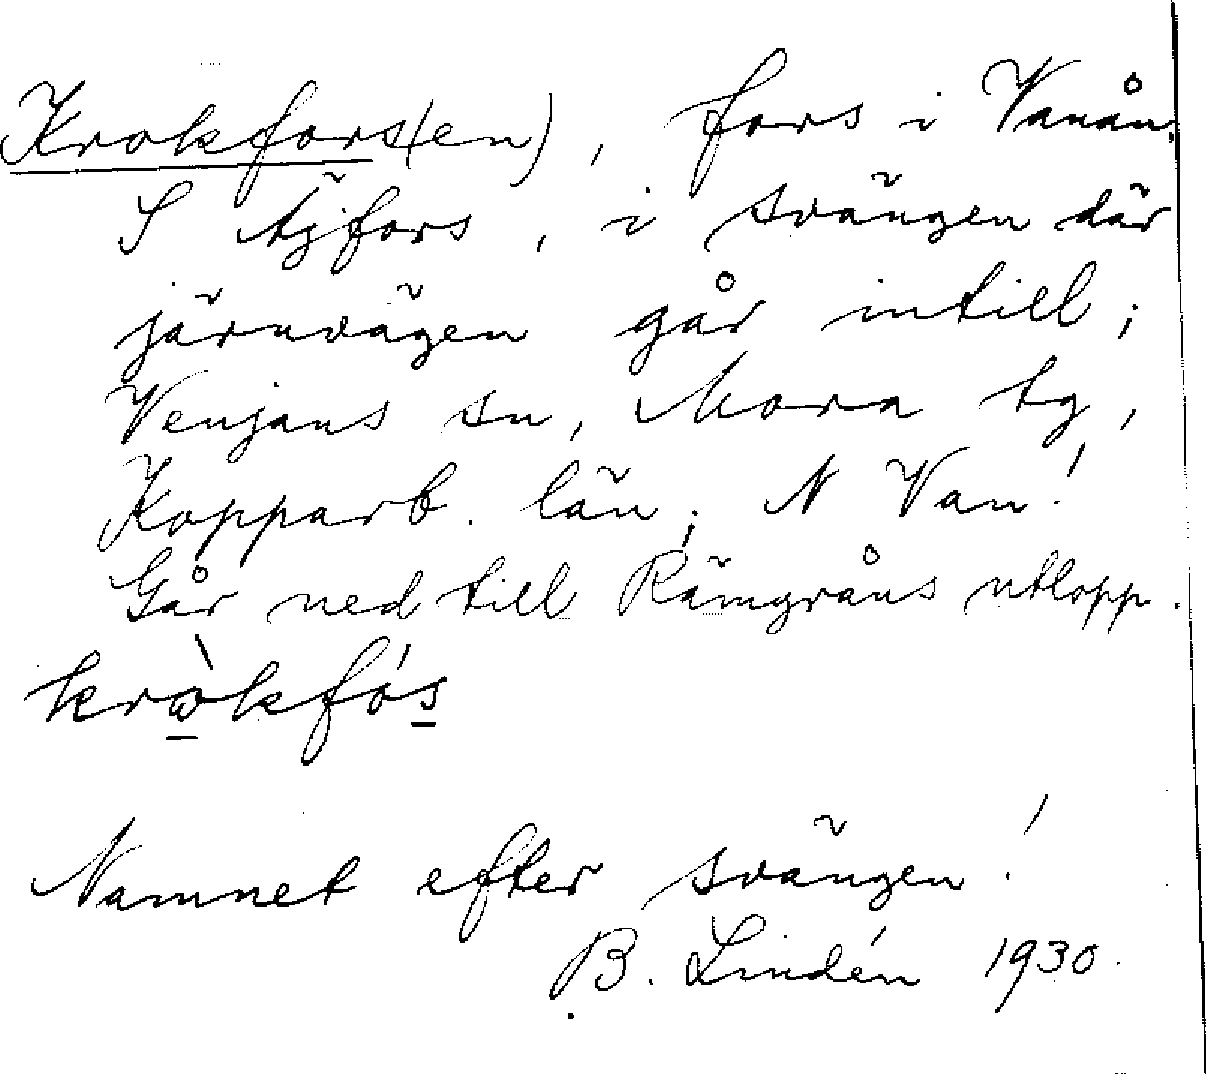 Krokfors(en), fors i Vanån,
S Äjfors, i svängen där
järnvägen går intill;
Venjans sn, Mora tg,
Kopparb. län; N Van!
Går ned till Rämgråns utlopp.
kròkfós
Namnet efter svängen!
B. Lindén 1930.